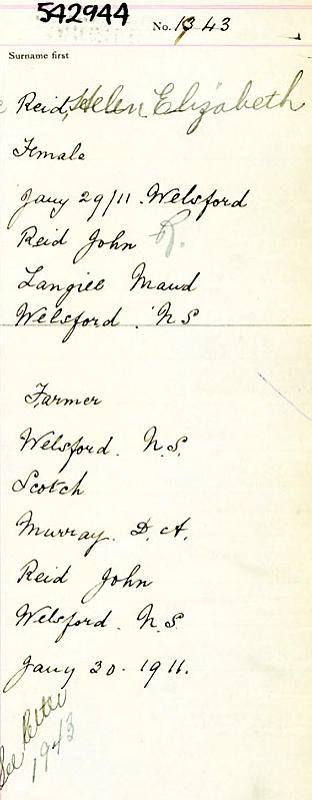 542944
No. 1343
Surname first
Reid, Helen Elizabeth
Female
Jany 29/11. Welsford
Reid John R.
Langill Maud
Welsford. N S
Farmer
Welsford. N.S.
Scotch
Murray. D. A.
Reid John
Welsford. N.S.
Jany 30. 1911.
See letter
1943